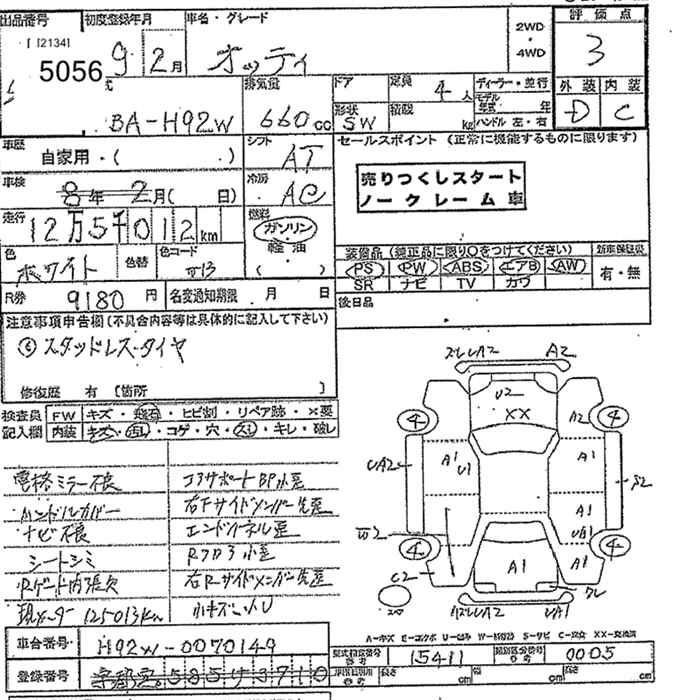 出品番号 初度登録年月 車名・グレード 2WD・4WD 評価点
[ I2134] 5056 9 2月 オッティ 3
型式 排気量 ドア 定員 4人 ディーラー・並行 外装 内装
BA-H92W 660cc 形状 SW 積載 kg モデル年式 年 ハンドル 左・右 D C
車歴 自家用・( ) シフト AT セールスポイント (正常に機能するものに限ります)
車検 8年 2月( 日) 冷房 AC 売りつくしスタート
ノークレーム車
走行 12万5千012km 燃料 ガソリン 軽油 ( )
色 ホワイト 色替 色コード 装備品(純正品に限り○をつけてください) 新車保証書
PS PW ABS エアB AW 有・無
SR ナビ TV カワ
R券 9180円 名変通知期限 月 日 後日品
注意事項申告欄(不具合内容等は具体的に記入して下さい)
スタッドレスタイヤ
修復歴 有 [箇所 ]
検査員 FW キズ・飛石・ヒビ割・リペア跡・×要
記入欄 内装 キズ・汚れ・コゲ・穴・スレ・キレ・破レ
電格ミラー不良 コアサポートBP小歪
ハンドルカバー 右Fサイドメンバー先歪
ナビ不良 エンドパネル歪
シートシミ Rフロア小歪
Rゲート内張欠 右Rサイドメンバー先歪
現メーター125013km 小キズ凹U
A2
U2
XX
4 A2 4
A1 U1 A1
UA2 S2
A1
UA1
W2
4 4
C2 A1 A1
UA1
A-キズ E-エクボ U-凹み W-補修跡 S-サビ C-腐食 XX-交換済
車台番号 H92W-0070149 型式指定番号 15411 類別区分番号 0005
登録番号 宇都宮 585 3710 長さ cm 幅 cm 高さ cm